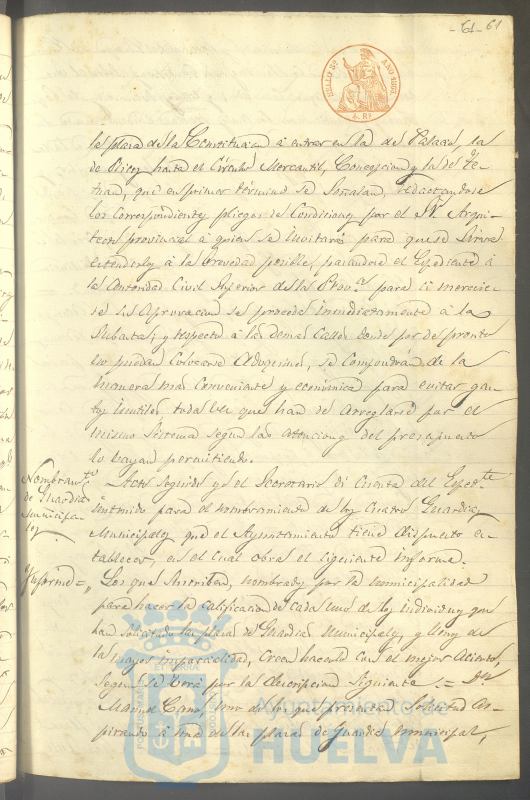 61
SELLO 9º AÑO 1866
la plaza de la Constitucion á entrar en la de Palacio, la
de hasta el Círculo Mercantil, Concepcion y la de Te-
tuan, que en primer término se Señalan, redactandose
los correspondientes pliegos de Condiciones por el Sr. Arqui-
tecto provincial á quien se invitará para que se sirva
estenderlos á la brevedad posible, pasandose el Espediente á
la autoridad Civil superior de la Provª para si merecie-
se su aprovacion se proceda inmediatamente á la
Subasta; y respecto á las demas Calles donde por de pronto
no puedan colocarse Adoquines, se compondrán de la
manera mas conveniente y económica para evitar gas-
tos inutiles toda vez que han de arreglarse por el
mismo sistema segun las atenciones del presupuesto
lo vayan permitiendo.
Nombramto
de Guardias
municipa-
les
Acto Seguido yo el Secretario di Cuenta del Espedte
instruido para el nombramiento de los Cuatro Guardias
Municipales que el Ayuntamiento tiene dispuesto es-
tablecer, en el cual obra el siguiente informe.
Informe =
"Los que Suscriben, nombrados por la municipalidad
para hacer la calificacion de cada uno de los individuos que
han solicitado las plazas de Guardias municipales, y llenos de
la mayor imparcialidad, Creen hacerlo con el mejor acierto,
segun se verá por la descripcion siguiente. =
Manuel Cano, uno de los que presentan solicitud as-
pirando á una de las plazas de Guardia municipal,
Ayuntamiento de
HUELVA